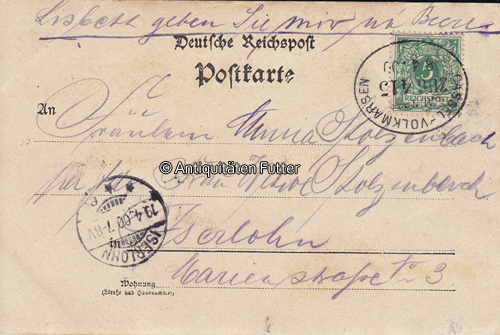 Lisbeth geben Sie mir na
Deutsche Reichspost
Postkarte
5
REICHSPOST
CASSEL-VOLKMARSEN
An
Fräulein Anna Stolzenbach
Frau Stolzenbach
© Antiquitäten Futter
19.4.00.7-8V
ISERLOHN
in Iserlohn
Marienstraße No 3
Wohnung
(Straße und Hausnummer)